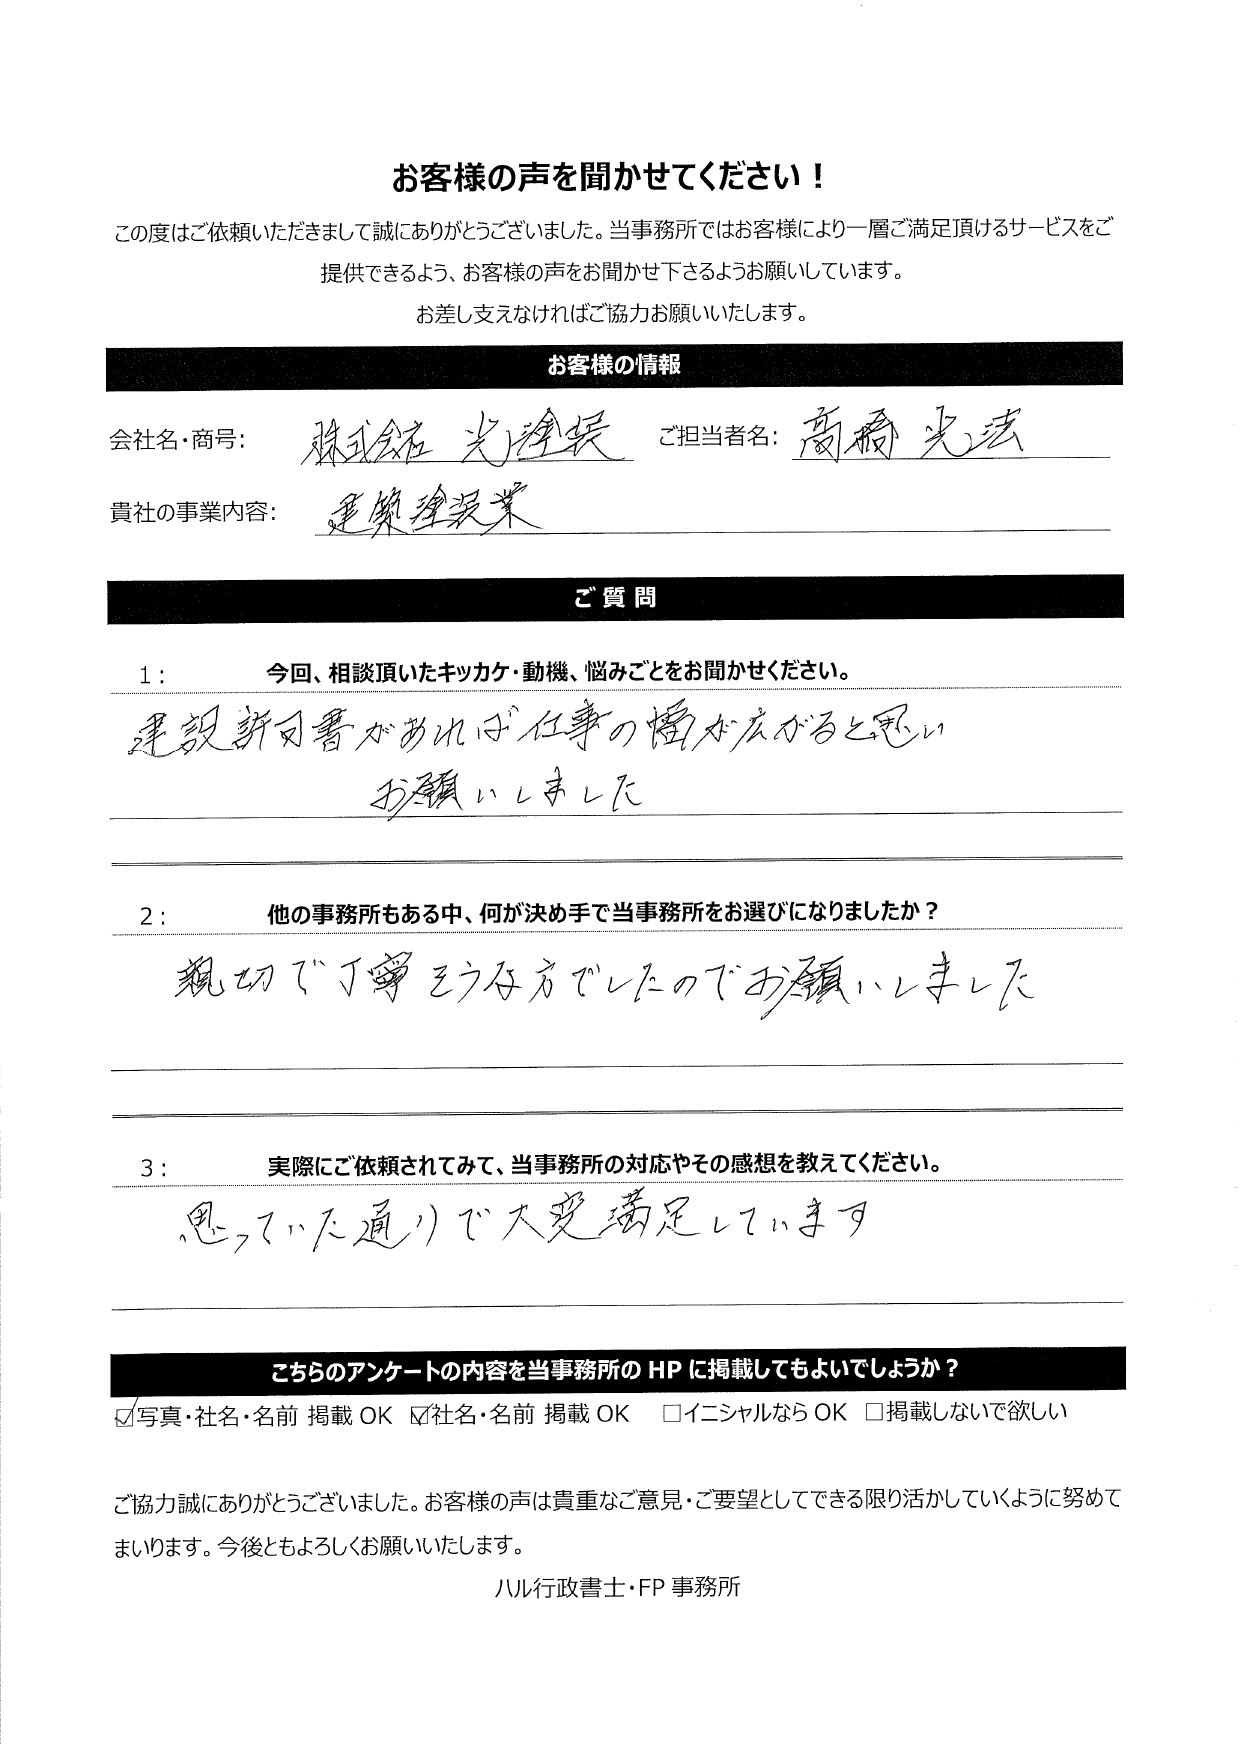 お客様の声を聞かせてください！
この度はご依頼いただきまして誠にありがとうございました。当事務所ではお客様により一層ご満足頂けるサービスをご
提供できるよう、お客様の声をお聞かせ下さるようお願いしています。
お差し支えなければご協力お願いいたします。
お客様の情報
会社名・商号： 株式会社 光塗装 ご担当者名： 髙橋 光法
貴社の事業内容： 建築塗装業
ご 質 問
1： 今回、相談頂いたキッカケ・動機、悩みごとをお聞かせください。
建設許可書があれば仕事の幅が広がると思い
お願いしました
2： 他の事務所もある中、何が決め手で当事務所をお選びになりましたか？
親切で丁寧そうな方でしたのでお願いしました
3： 実際にご依頼されてみて、当事務所の対応やその感想を教えてください。
思っていた通りで大変満足しています
こちらのアンケートの内容を当事務所の HP に掲載してもよいでしょうか？
☑写真・社名・名前 掲載 OK ☑社名・名前 掲載 OK □イニシャルなら OK □掲載しないで欲しい
ご協力誠にありがとうございました。お客様の声は貴重なご意見・ご要望としてできる限り活かしていくように努めて
まいります。今後ともよろしくお願いいたします。
ハル行政書士・FP 事務所